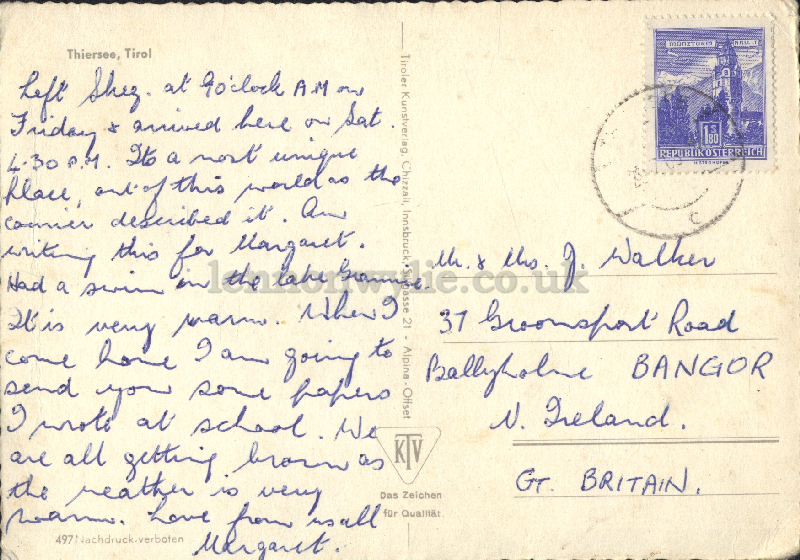 Thiersee, Tirol
Left Shez. at 9 o'clock A.M on
Friday & arrived here on Sat.
4.30 P.M. Its a most unique
Place, out of this world as the
courier described it. Am
writing this for Margaret.
Had a swim in the lake Grannie.
It is very warm. When I
come home I am going to
send you some papers
I wrote at school. We
are all getting brown as
the weather is very
warm. Love from us all
Margaret.
497 Nachdruck verboten
Tiroler Kunstverlag, Chizzali, Innsbruck, 21 - Alpina-Offset
KTV
Das Zeichen
für Qualität.
1 S 80
REPUBLIK ÖSTERREICH
Mr. & Mrs. J. Walker
37 Groomsport Road
Ballyholme BANGOR
N. Ireland.
GT. BRITAIN.
lennonwylie.co.uk